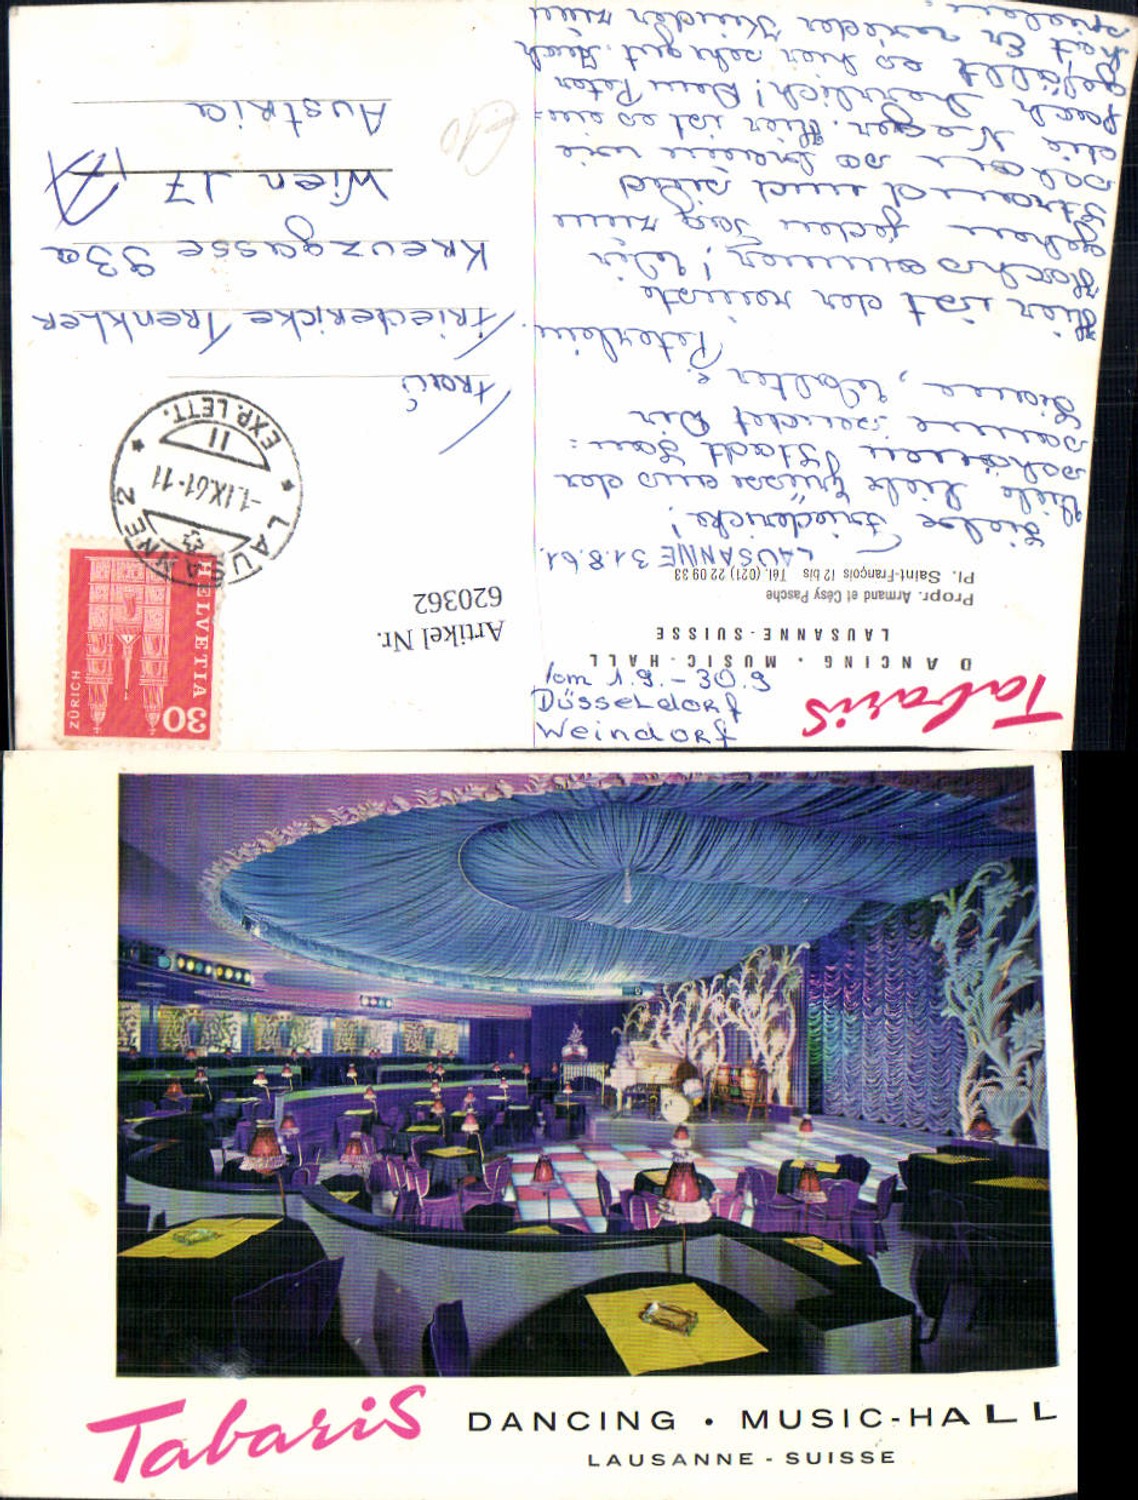 Tabaris
DANCING • MUSIC-HALL
LAUSANNE-SUISSE
Propr. Armand et Césy Pasche
Pl. Saint-François 12 bis Tél. (021) 22 09 33
Weindorf
Düsseldorf
Vom 1.9. - 30.9
LAUSANNE 31.8.61.
Liebe Friedericke!
Viele liebe Grüsse aus der
schönen Stadt Lau=
sanne sendet Dir
Diane, Walter &
Peterlein
Hier ist der reinste
Hochsommer! Wir
gehen jeden Tag zum
Strand und sind
schon so braun wie
die Neger. Hier ist es ein=
fach herrlich! Dem Peter
gefällt es hier sehr gut. Auch
hat Er wieder Kinder zum
spielen.
Artikel Nr.
620362
HELVETIA
30
ZÜRICH
LAUSANNE 2
-1.IX.61-11
11
EXP. LETT.
Frau
Friedericke Trenkler
Kreuzgasse 93a
Wien 17
Austria
Tabaris
DANCING • MUSIC-HALL
LAUSANNE - SUISSE